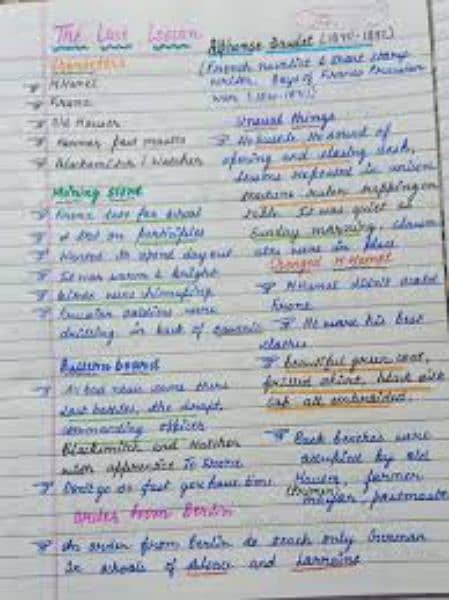 The Last Lesson
Characters
M. Hamel
Franz
Old Hauser
Former post master
Blacksmith / Watcher
Morning scene
Franz late for school
A test on participles
Wanted to spend day out
It was warm & bright
birds were chirruping
Prussian soldiers were
drilling in back of
Bulletin board
All bad news came there
lost battles, the draft,
commanding officer
Blacksmith and Watcher
with apprentice To Franz
Don't go so fast you have time
Order from Berlin
An order from Berlin to teach only German
In schools of Alsace and Lorraine
Alphonse Daudet (1840-1897)
(French novelist & short story
writer. Days of Franco Prussian
war (1870-1871)
Unusual things
No bustle. No sound of
opening and closing desk,
lessons repeated in unison
teachers ruler rapping on
table. It was quiet as
Sunday morning, classm
ates were in place
Changed M Hamel
M Hamel didn't scold
Franz
He wore his best
clothes
beautiful green coat,
frilled shirt, black silk
cap all embroided.
Back benches were
occupied by old
Hauser, former
mayor, postmaste